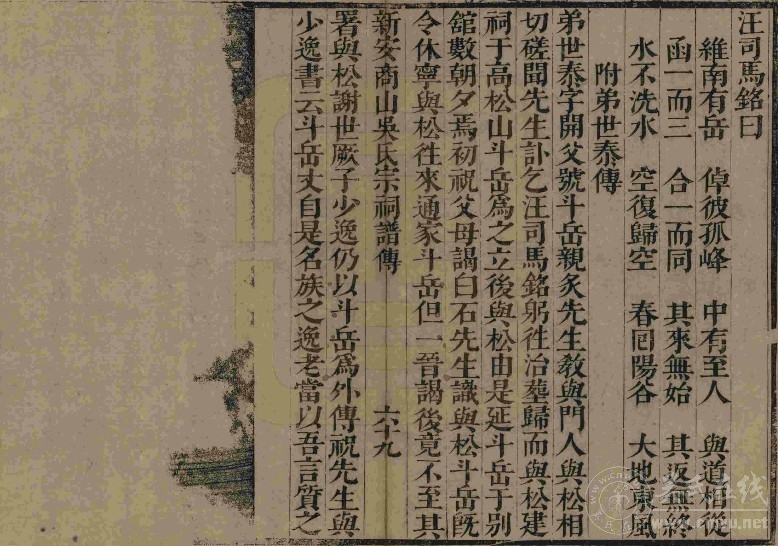 汪司馬銘曰
維南有岳　倬彼孤峰　中有至人　與道相從
函一而三　合一而同　其來無始　其返無終
水不洗水　空復歸空　春囘陽谷　大地東風
附弟世泰傳
弟世泰字開父號斗岳親炙先生教與門人與松相
切磋聞先生訃乞汪司馬銘躬徃治墓歸而與松建
祠于高松山斗岳爲之立後與松由是延斗岳于別
舘數朝夕焉初祝父母謁白石先生識與松斗岳旣
令休寧與松徃來通家斗岳但一晉謁後竟不至其
新安商山吳氏宗祠譜傳　六十九
署與松謝世厥子少逸仍以斗岳爲外傳祝先生與
少逸書云斗岳丈自是名族之逸老當以吾言質之